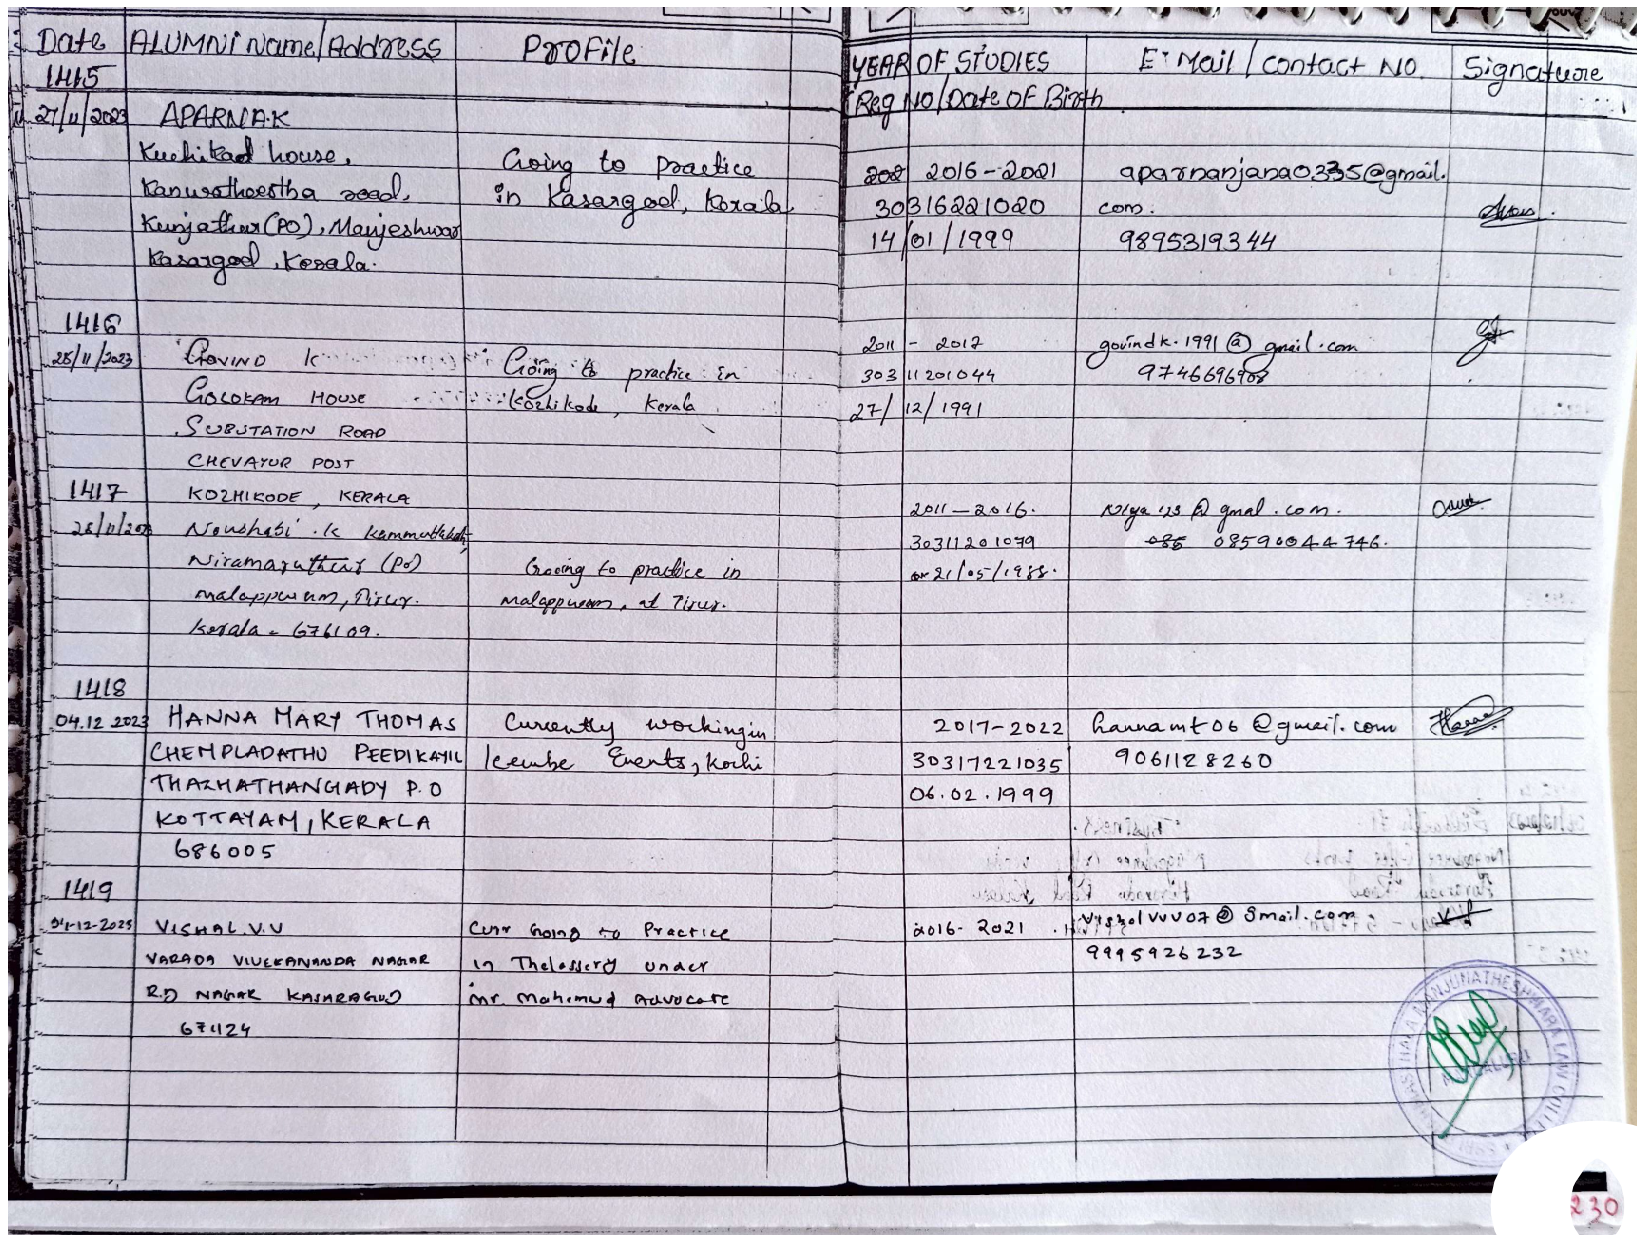 Date ALUMNi Name/Address Profile YEAR OF STUDIES E-Mail / Contact NO. Signature
1415 Reg NO/Date OF Birth
27/11/2023 APARNA.K
Kuchikad house,
Kanwatheertha road,
Kunjathur (PO), Manjeshwar
Kasargod, Kerala.
Going to practice
in Kasargod, Kerala
2016-2021
30316221020
14/01/1999
aparnanjana0335@gmail.
com.
9895319344
1416
28/11/2023 GOVIND K
GOLOKAM HOUSE
SUBSTATION ROAD
CHEVAYUR POST
KOZHIKODE, KERALA
Going to practice in
Kozhikode, Kerala
2011 - 2017
30311201044
27/12/1991
govindk.1991@gmail.com
9746696908
1417
28/11/2023 Noushabi .K
Niramaruthur (Po)
malappuram, Tirur.
Kerala - 676109.
Gooing to practice in
malappuram, at Tirur.
2011-2016.
30311201079
21/05/1988.
@ gmal.com.
085 08590044746.
1418
04.12 2023 HANNA MARY THOMAS
CHEMPLADATHU PEEDIKAYIL
THAZHATHANGADY P.O
KOTTAYAM, KERALA
686005
Currently working in
Icembe Events, Kochi
2017-2022
30317221035
06.02.1999
hannamt06@gmail.com
9061128260
1419
04-12-2023 VISHAL.V.V
VARADA VIVEKANANDA NAGAR
R.D NAGAR KASARAGOD
671124
Curr Going to Practice
in Thelassery under
Mr. Mahimud Advocate
2016-2021
Vishalvvv07@gmail.com
9995926232
MANJUNATHESHWARA LAW COLLEGE
MANGALURU
230